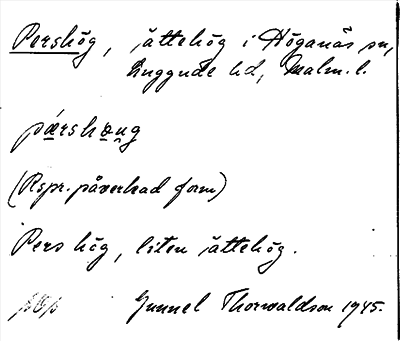 Pershög, ättehög i Höganäs sn,
Luggude hd, Malm. l.
pærshøug
(Rspr. påverkad form)
Pers hög, liten ättehög.
Gunnel Thorwaldson 1945.